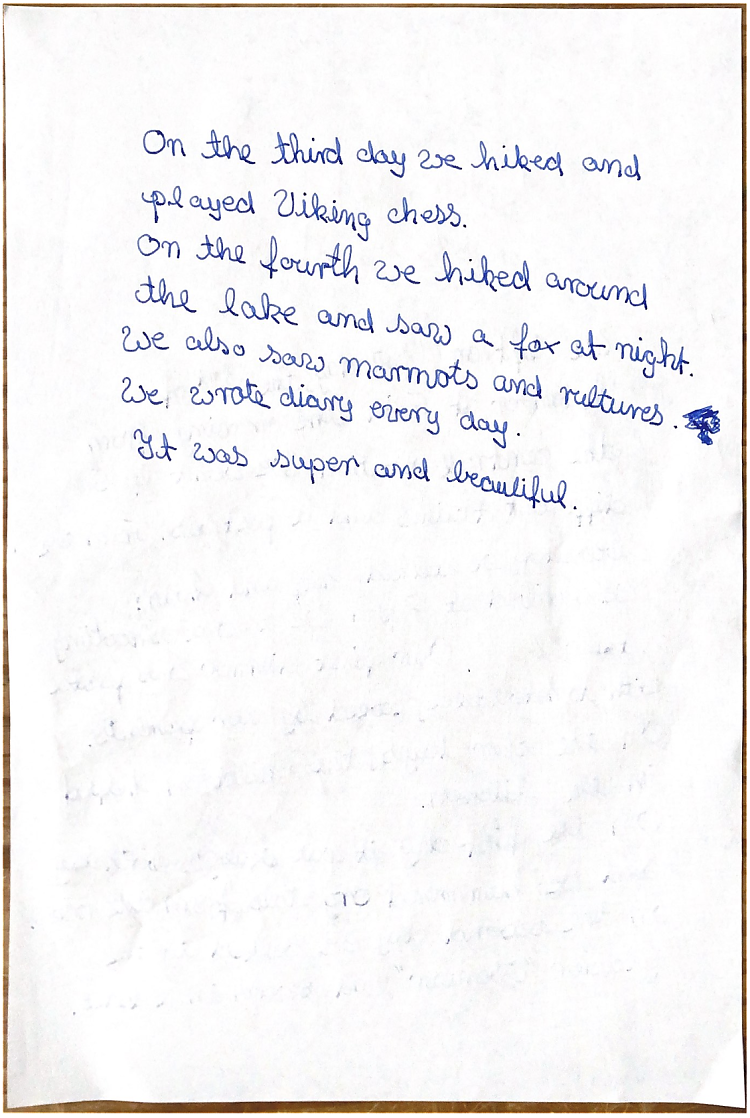 On the third day we hiked and
played Viking chess.
On the fourth we hiked around
the lake and saw a fox at night.
We also saw marmots and vultures.
We wrote diary every day.
It was super and beautiful.